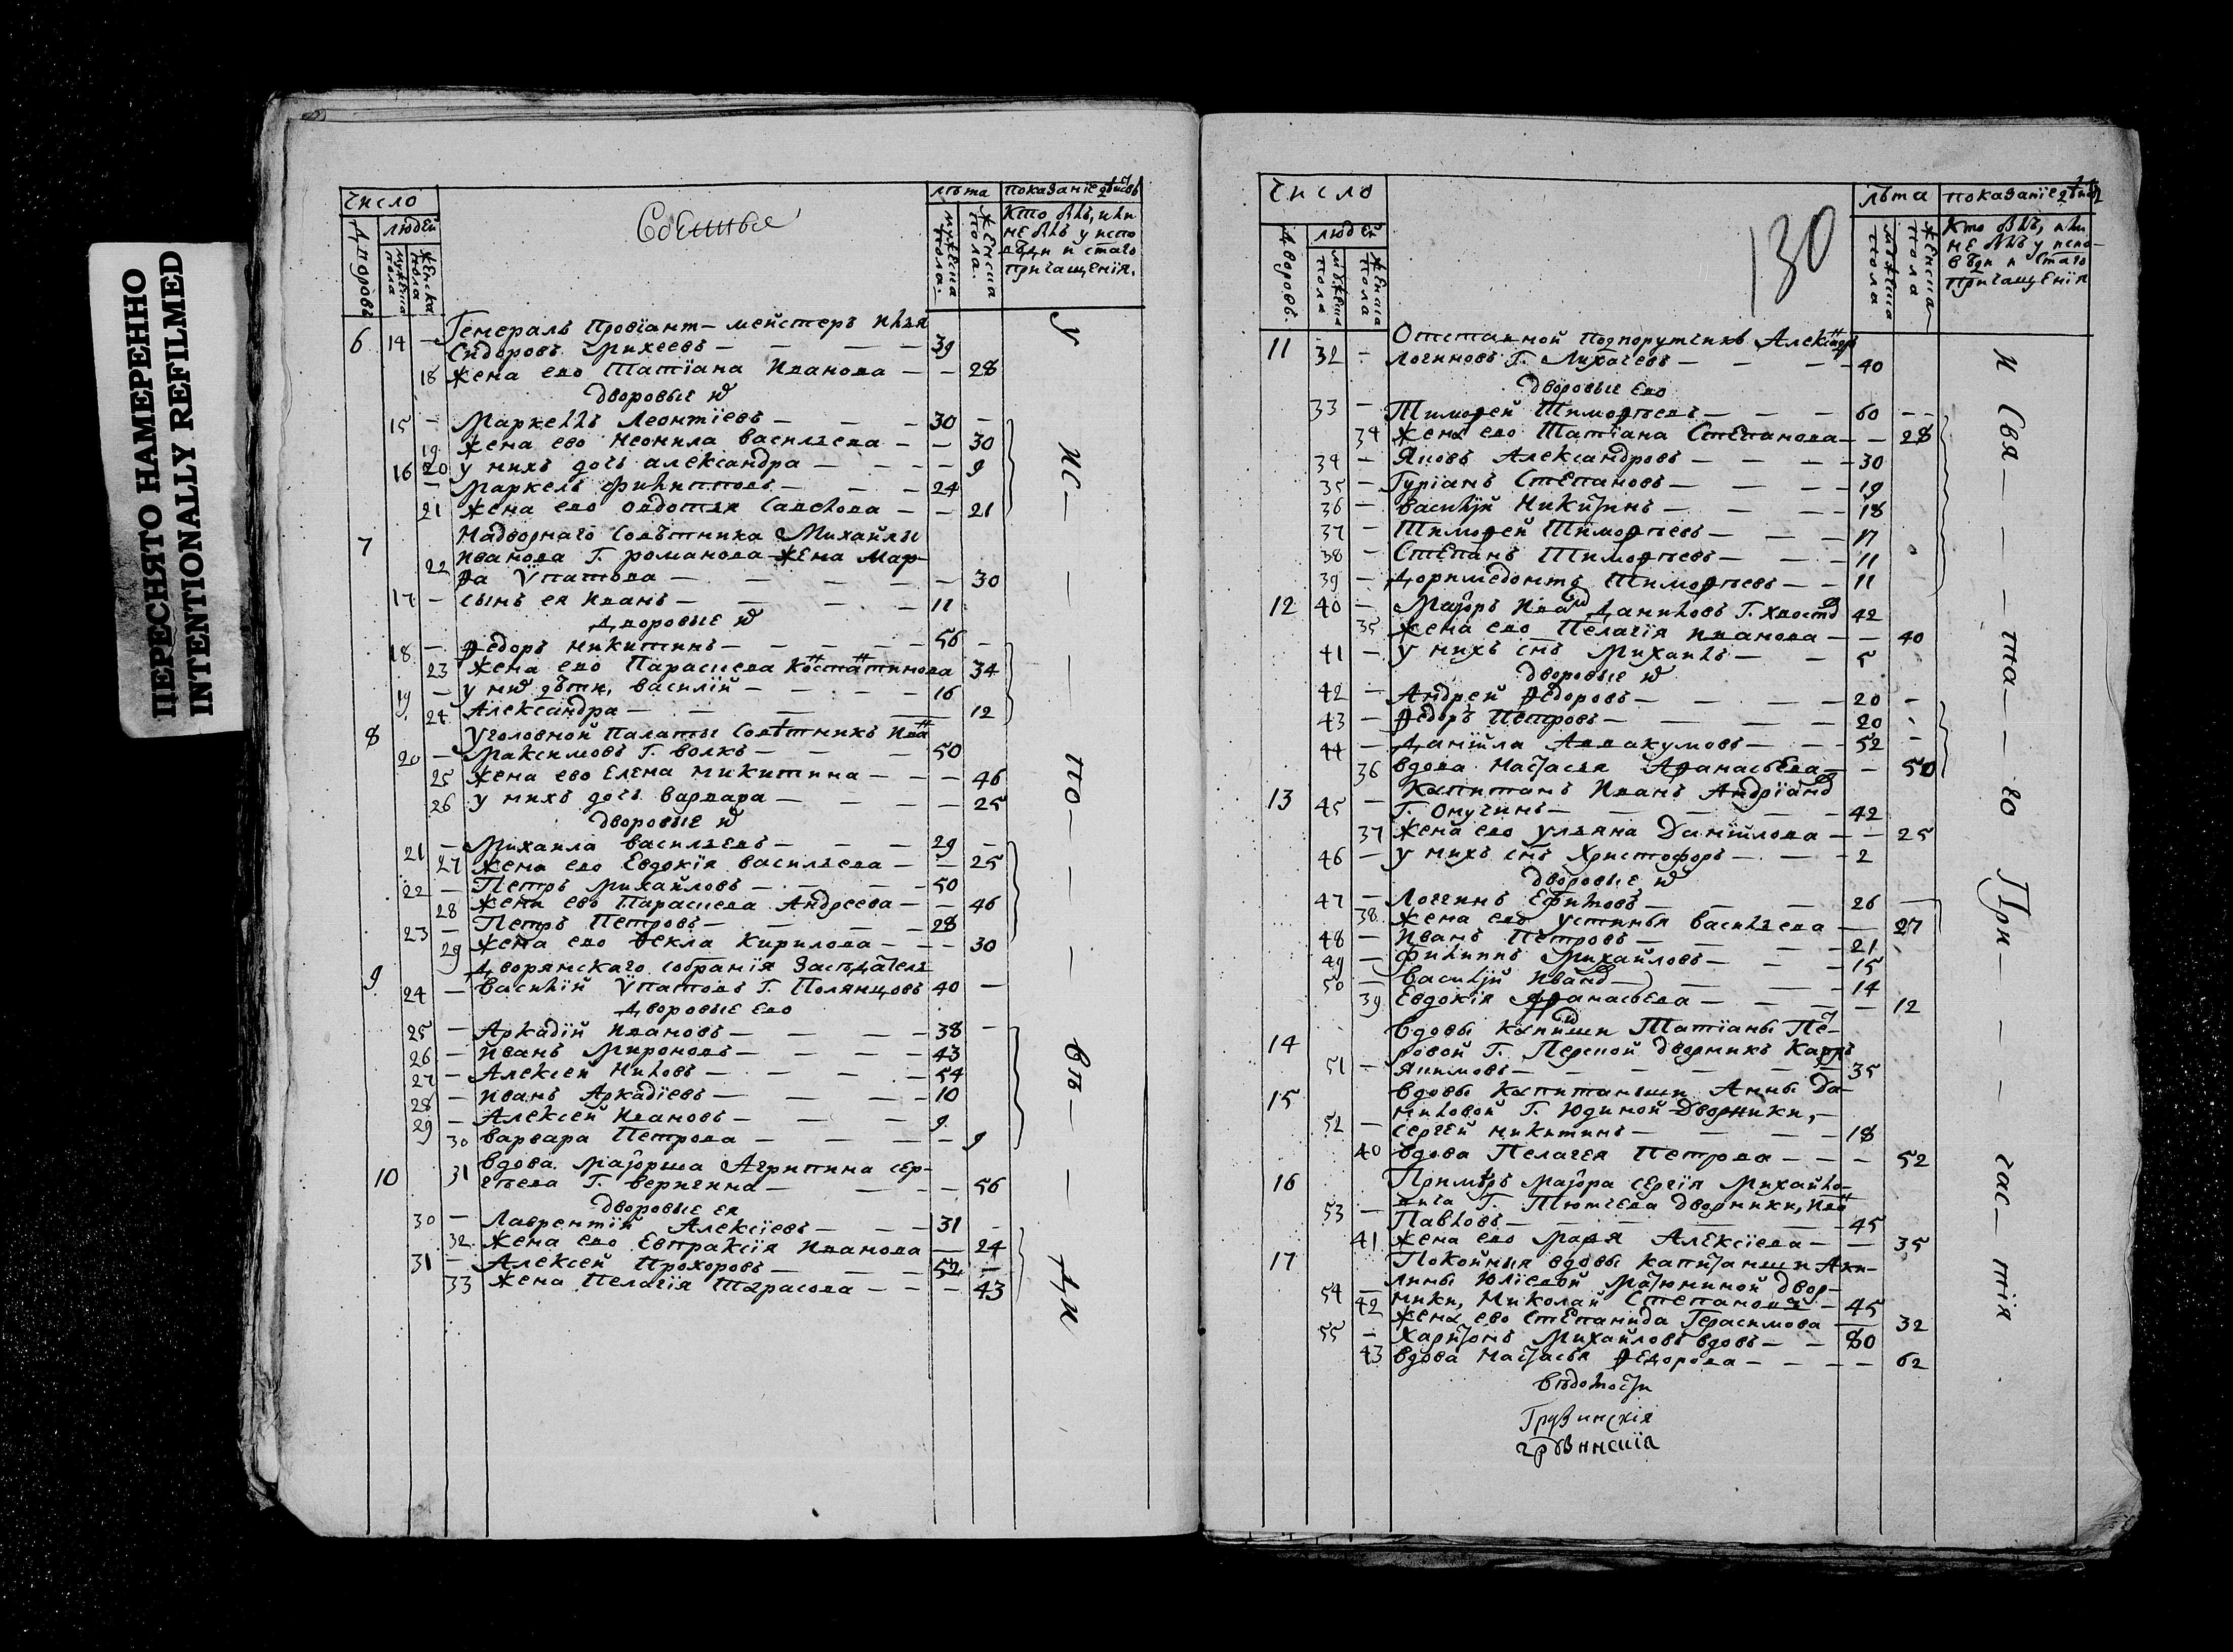 ПЕРЕСНЯТО НАМЕРЕННО
INTENTIONALLY REFILMED
Число
лѣта
показанїе
Дворовъ
людей
мужеска пола
женска пола
мужеска пола
женска пола
Кто былъ, или
не былъ у испо
вѣди и стаго
причащенїя.
6 14 — Генералъ Провїант-мейстеръ Илья
Сидоровъ Михеевъ — 39
18 жена ево Татїана Иванова — 28
дворовые их
15 — Маркеллъ Леонтїевъ — 30
19 жена ево Неонила васильева — 30
20 у нихъ дочь александра — 9
16 — Маркелъ Филипповъ — 24
21 жена ево овдотья Савелова — 21
7 Надворнаго Совѣтника Михайлы
22 Иванова Г. романова жена Мар-
ѳа Ѵпатова — 30
17 — сынъ ея Иванъ — 11
дворовые их
18 — Ѳедоръ никитинъ — 56
23 жена ево Парасцева Костатинова 34
19 — у них дѣти, василїй — 16
24 Александра — 12
8 Уголовной Палаты Совѣтникъ Ива
20 — Максимовъ Г. волкъ — 50
25 жена ево Елена никитина — 46
26 у нихъ дочь варвара — 25
дворовые их
21 — Михаила васильевъ — 29
27 жена ево Евдокїя васильева — 25
22 — Петръ Михайловъ — 50
28 жена ево Парасцева Андреева — 46
23 — Петръ Петровъ — 28
29 жена ево Ѳекла Кирилова — 30
9 Дворянскаго собранїя Засѣдатель
24 — василїй Ѵпатовъ Г. Полянцовъ 40 —
Дворовые Ево
25 — Аркадїй Ивановъ — 38
26 — Иванъ Мироновъ — 43
27 — Алексей Ниловъ — 54
28 — Иванъ Аркадїевъ — 10
29 — Алексей Ивановъ — 9
30 варвара Петрова — 9
10 31 вдова Маїорша Агрипина сер-
гѣева Г. веригина — 56
дворовые ея
30 — Лаврентїй Алексїевъ — 31
32 жена ево Евпраксїя Иванова — 24
31 — Алексей Прохоровъ — 52
33 жена Пелагїя Тарасова — 43
У
ис—
по—
вѣ—
ди
130
Число
лѣта
показанїе
Дворовъ.
людей
мужеска пола
женска пола
мужеска пола
женска пола
Кто былъ, или
не былъ у испо-
вѣди и стаго
причащенїя
11 Отставной подпорутчикъ Александръ
32 — Логиновъ Г. Лихачевъ — 40
дворовые Ево
33 — Тимоѳей Тимоѳѣевъ — 60
34 жена ево Татїана Степанова — 28
34 — Яковъ Александровъ — 30
35 — Гурїанъ Степановъ — 19
36 — василїй Никитинъ — 18
37 — Тимоѳей Тимоѳѣевъ — 17
38 — Степанъ Тимоѳѣевъ — 11
39 — Доримедонтъ Тимоѳѣевъ — 11
12 40 — Маїоръ Иван Даниловъ Г. хвостов 42
35 жена ево Пелагїя Иванова — 40
41 — у нихъ снъ Михаилъ — 5
дворовые их
42 — Андрей Ѳедоровъ — 20
43 — Ѳедоръ Петровъ — 20
44 — Данїила Аввакумовъ — 52
36 вдова Настасья Аѳанасьева — 50
13 Капитанъ Иванъ Андрїанов
45 — Г. Онучинъ — 42
37 жена ево ульяна Данїилова — 25
46 — у нихъ снъ Христофоръ — 2
дворовые их
47 — Логгинъ Ефимовъ — 26
38 жена ево устинья васильева — 27
48 — Иванъ Петровъ — 21
49 — Филиппъ Михайловъ — 15
50 — василїй Иванов — 14
39 Евдокїя Аѳанасьева — 12
14 вдовы капитши Татїаны Пе-
ровой Г. Перской дворникъ Карпъ
51 — Якимовъ — 35
15 вдовы капитанши Анны Да-
ниловой Г. Юдиной дворники,
52 — сергей никитинъ — 18
40 вдова Пелагея Петрова — 52
16 Примѣръ маїора сергїя Михайло-
вича Г. Тютчева дворники, Ива
53 — Павловъ — 45
41 жена ево Марья Алексїева — 35
17 Покойныя вдовы капитанши Аки-
лины Юлїевой Матюниной двор-
54 — ники, Николай Степановъ — 45
42 жена ево Степанида Герасимова — 32
55 — Харитонъ Михайловъ вдовъ — 80
43 вдова Настасья Ѳедорова — 62
вѣдомости
Грузинскїя
грузинскїя
и Свя—
та—
го
При—
час—
тїя